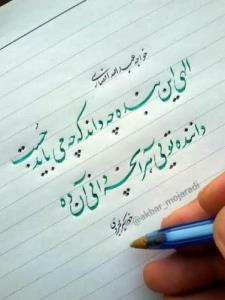 خواجه عبدالله انصاری
الهی این بنده چه داند که چه می باید جست
داننده تویی هر آنچه دانی آن ده
@akbar_mojaradi